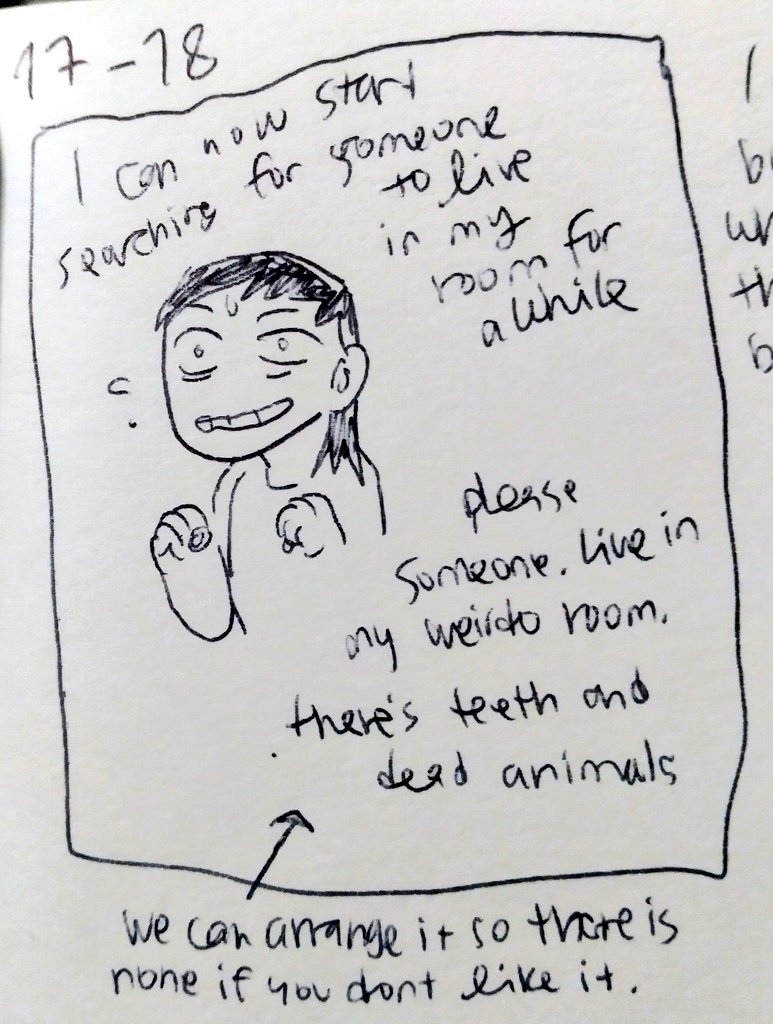 17-18
I can now start
searching for someone
to live
in my
room for
a while
please
someone. Live in
my weirdo room.
there's teeth and
dead animals
we can arrange it so there is
none if you dont like it.
I